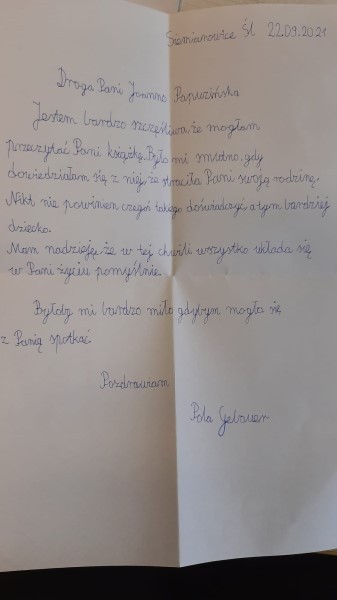 Siemianowice Śl 22.09.2021
Droga Pani Joanno Papuzińska
Jestem bardzo szczęśliwa że mogłam
przeczytać Pani książkę. Było mi smutno, gdy
dowiedziałam się z niej, że straciła Pani swoją rodzinę.
Nikt nie powinien czegoś takiego doświadczyć a tym bardziej
dziecko.
Mam nadzieję, że w tej chwili wszystko układa się
w Pani życiu pomyślnie.
Byłoby mi bardzo miło gdybym mogła się
z Panią spotkać.
Pozdrawiam
Pola Gebauer